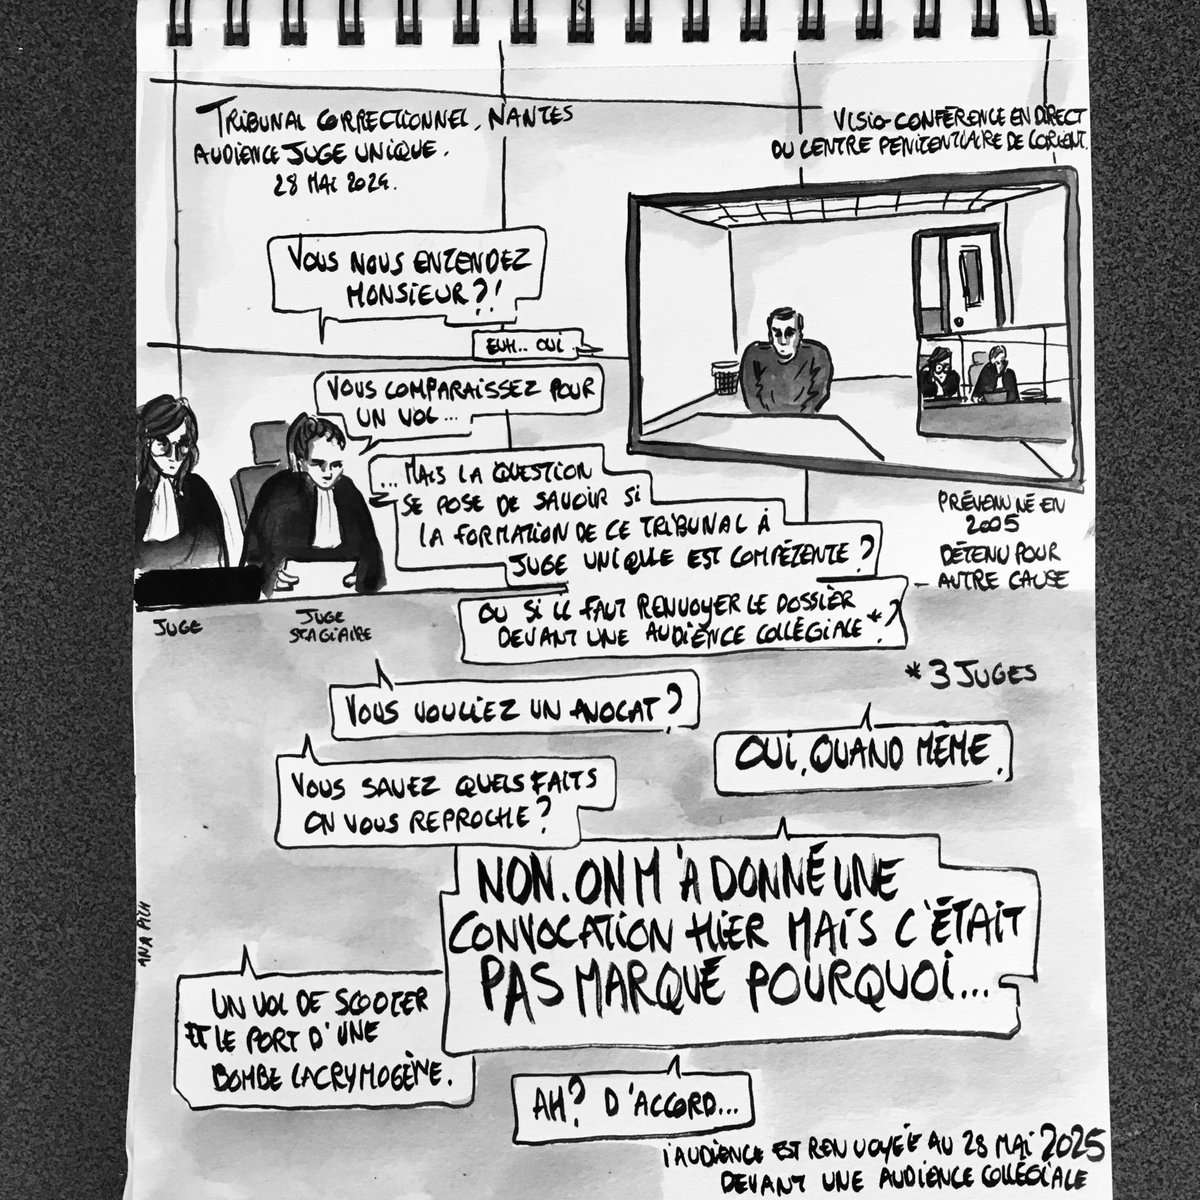 TRIBUNAL CORRECTIONNEL, NANTES
AUDIENCE JUGE UNIQUE.
28 MAI 2024.
VISIO-CONFÉRENCE EN DIRECT
DU CENTRE PÉNITENTIAIRE DE LORIENT.
VOUS NOUS ENTENDEZ
MONSIEUR?!
EUH.. OUI
VOUS COMPARAISSEZ POUR
UN VOL...
...MAIS LA QUESTION
SE POSE DE SAVOIR SI
LA FORMATION DE CE TRIBUNAL À
JUGE UNIQUE EST COMPÉTENTE?
PRÉVENU NÉ EN
2005
DÉTENU POUR
AUTRE CAUSE
OU SI IL FAUT RENVOYER LE DOSSIER
DEVANT UNE AUDIENCE COLLÉGIALE*?
JUGE
JUGE
STAGIAIRE
* 3 JUGES
VOUS VOULIEZ UN AVOCAT?
OUI, QUAND MÊME.
VOUS SAVEZ QUELS FAITS
ON VOUS REPROCHE?
NON. ON M'A DONNÉ UNE
CONVOCATION HIER MAIS C'ÉTAIT
PAS MARQUÉ POURQUOI...
ANA PICH
UN VOL DE SCOOTER
ET LE PORT D'UNE
BOMBE LACRYMOGÈNE.
AH? D'ACCORD...
L'AUDIENCE EST RENVOYÉE AU 28 MAI 2025
DEVANT UNE AUDIENCE COLLÉGIALE